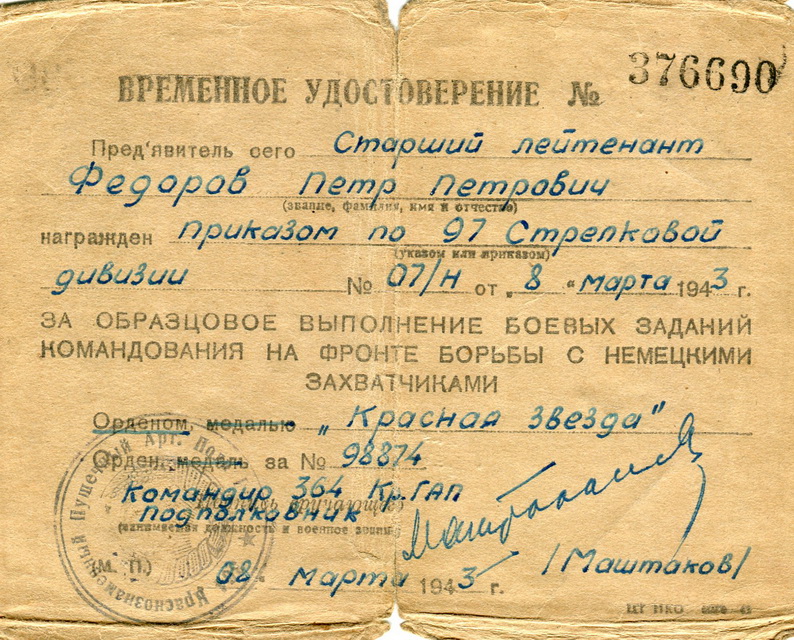 ВРЕМЕННОЕ УДОСТОВЕРЕНИЕ № 376690
Пред'явитель сего Старший лейтенант
Федоров Петр Петрович
(звание, фамилия, имя и отчество)
награжден приказом по 97 Стрелковой
(указом или приказом)
дивизии № 07/Н от „8“ марта 1943 г.
ЗА ОБРАЗЦОВОЕ ВЫПОЛНЕНИЕ БОЕВЫХ ЗАДАНИЙ
КОМАНДОВАНИЯ НА ФРОНТЕ БОРЬБЫ С НЕМЕЦКИМИ
ЗАХВАТЧИКАМИ
Орденом, медалью „Красная звезда"
Орден, медаль за № 98874
Командир 364 Кр. ГАП
подполковник
(наименвание должность и военное звание
(М. П.) 08 марта 1943 г. /Маштаков/
Краснознаменный Пушечный Арт.
ЦТ НКО